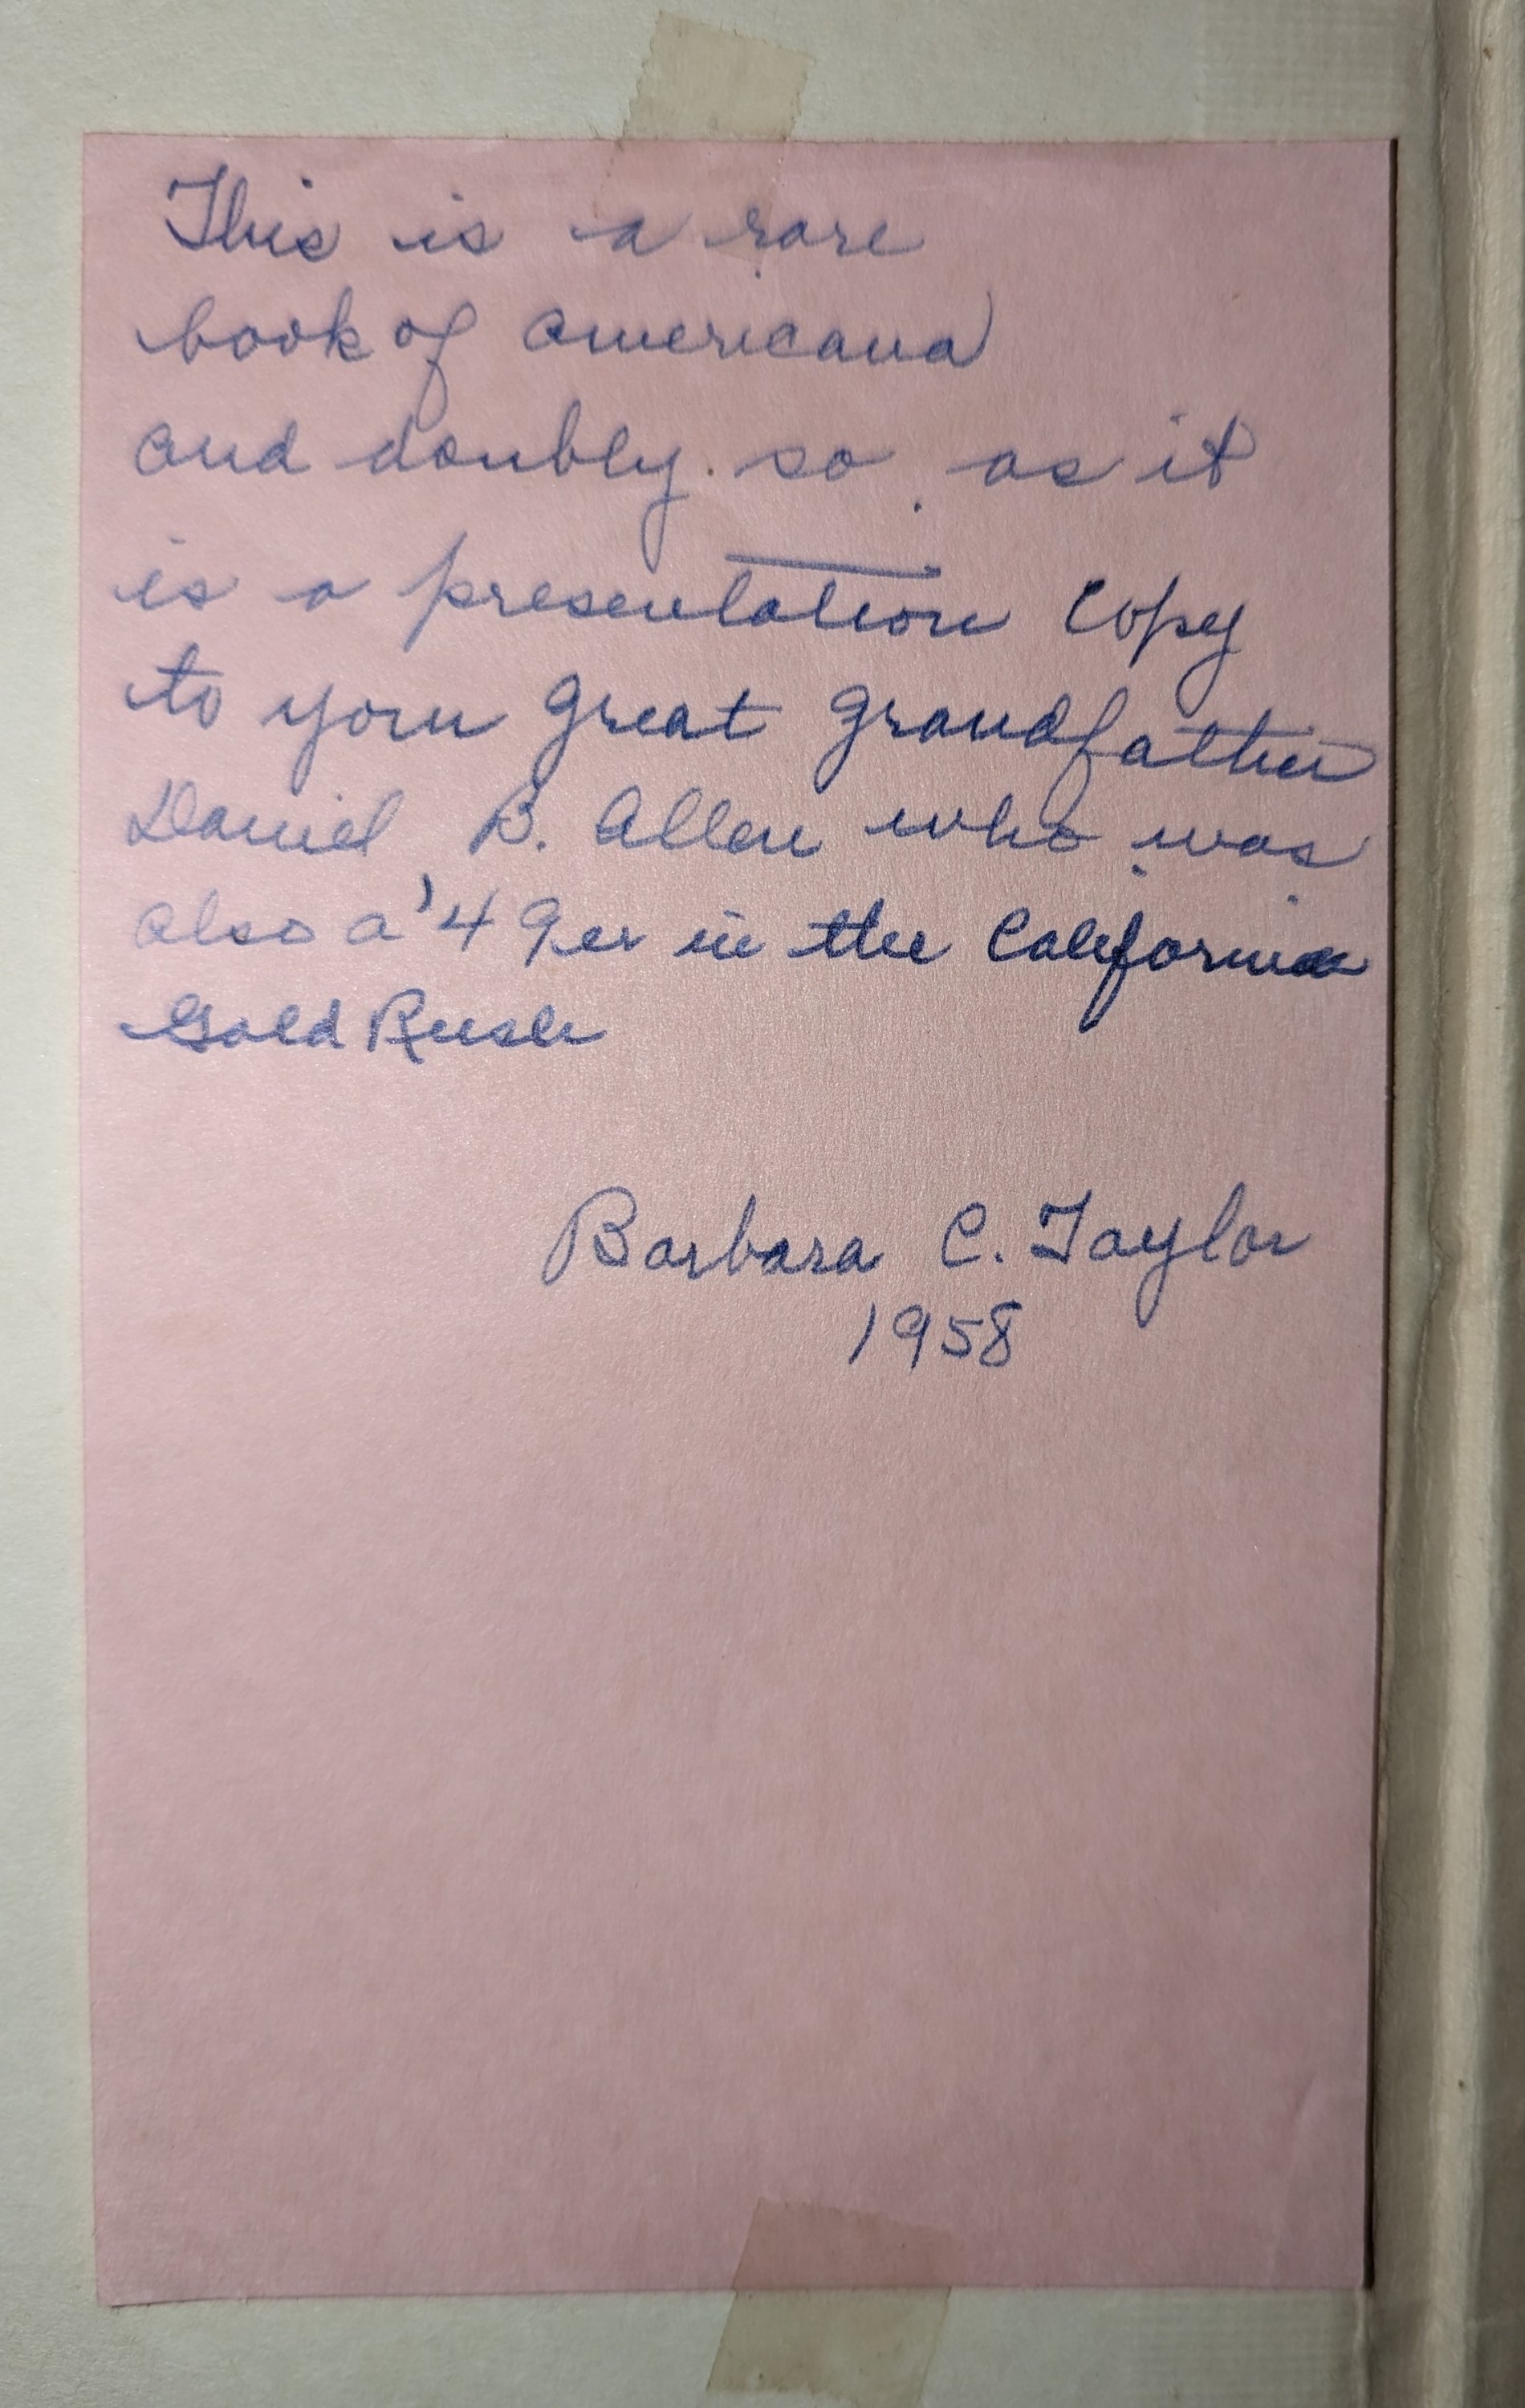 This is a rare
book of americana
and doubly so as it
is a presentation copy
to your great grandfather
Daniel B. Allen who was
also a '49er in the California
Gold Rush
Barbara C. Taylor
1958